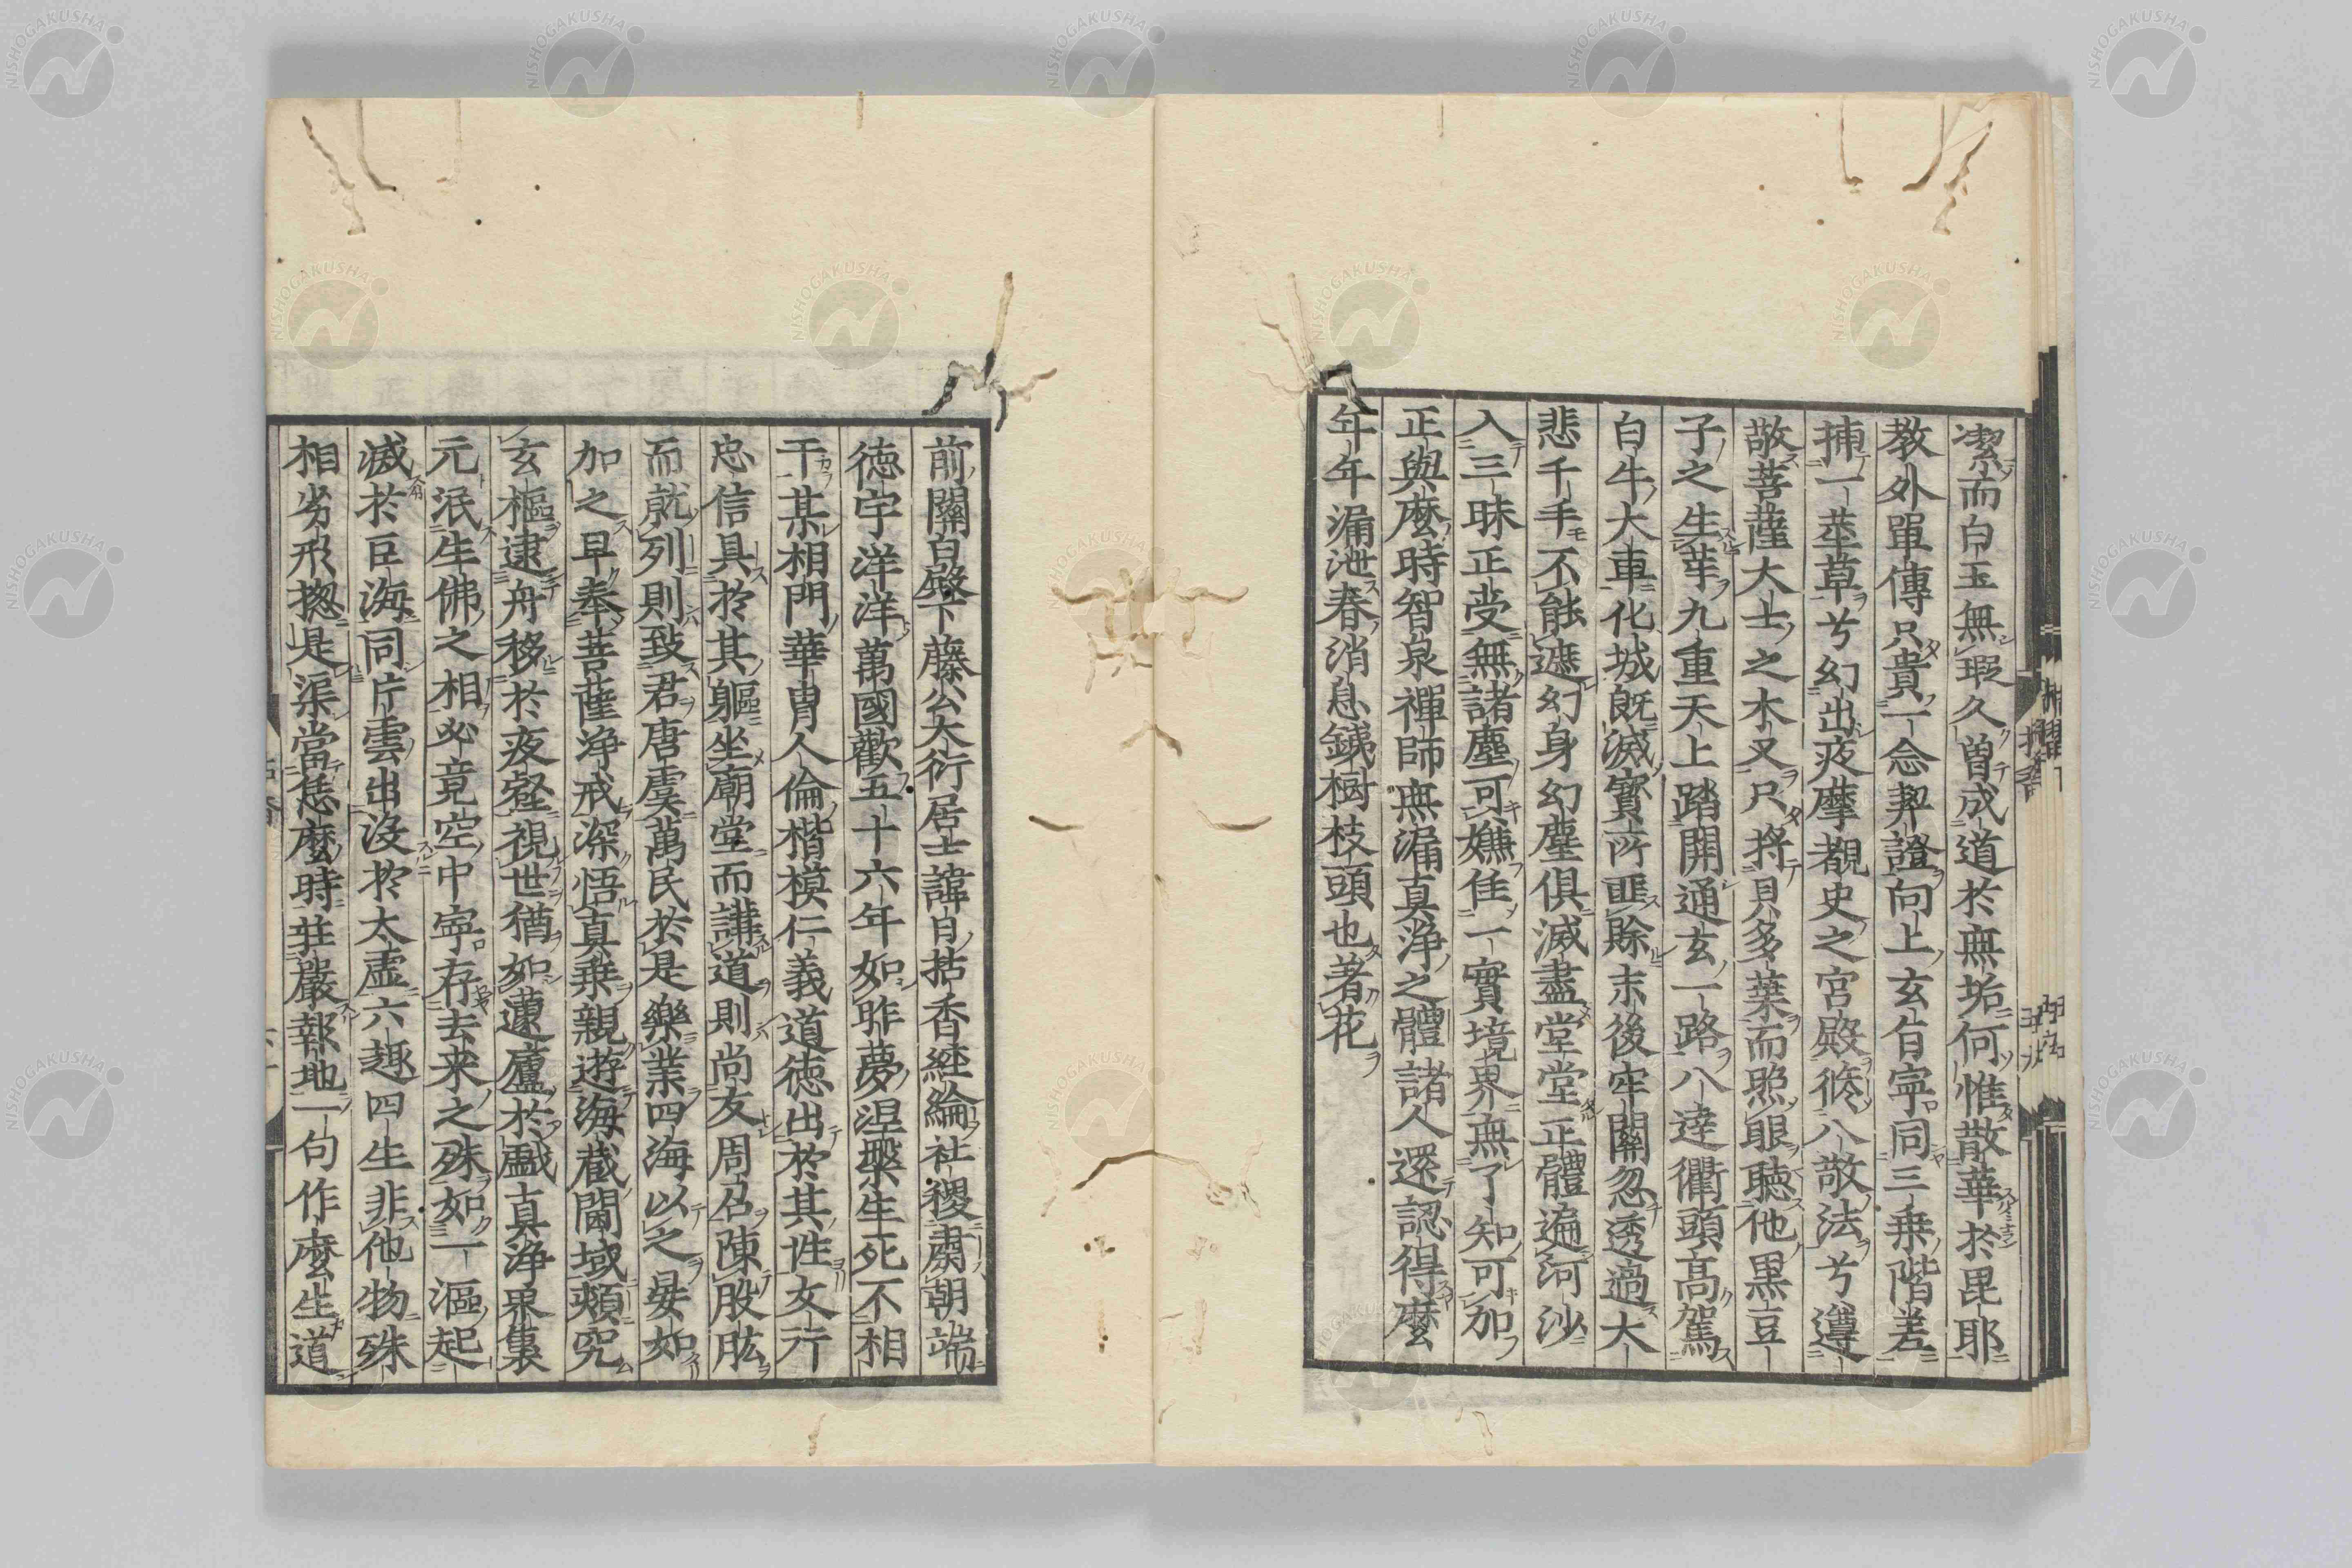 潔而白玉無瑕久曽成道於無垢何惟散華於毘耶
教外單傳只貴一念契證向上玄旨寧同三乗階差
捕一莖草兮幻出夜摩覩史之宮殿修八敬法兮遵
敬菩薩大士之木叉只将貝多葉而照眼聴他黒豆
子之生芽九重天上踏開通玄一路八達衢頭高駕
白牛大車化城既滅寳所匪賖末後牢關忽透過大
悲千手不能遮幻身幻塵俱滅盡堂堂正體遍河沙
入三昧正受無諸塵可嫌住一實境界無了知可加
正與麽時智泉禪師無漏真浄之體諸人還認得麽
年年漏泄春消息鐵樹枝頭也著花
前關白殿下藤公大衍居士諱日拈香経綸社稷肅朝端
徳宇洋洋萬國歡五十六年如昨夢涅槃生死不相
干某相門華冑人倫楷模仁義道徳出於其性文行
忠信具於其軀坐廟堂而講道則尚友周召陳股肱
而就列則致君唐虞萬民於是樂業四海以之晏如
加之早奉菩薩浄戒深悟真乗親遊海蔵閫域頬究
玄樞逮舟移於夜壑視世猶如蘧廬於戯真浄界裏
元泯生佛之相必竟空中寧存去来之殊如一漚起
滅於巨海同片雲出没於太虚六趣四生非他物殊
相劣形揔是渠當恁麽時荘嚴報地一句作麽生道
NISHOGAKUSHA